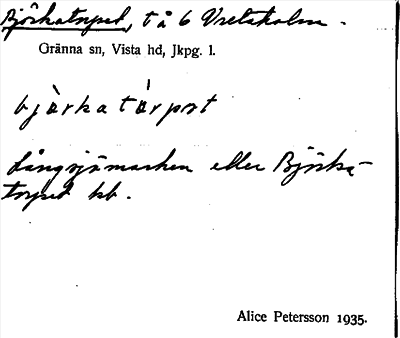 Björkatorpet, t å 6 Vretaholm.
Gränna sn, Vista hd, Jkpg. l.
bjàrkatárpət
Långsjömarken eller Björka-
torpet kb.
Alice Petersson 1935.